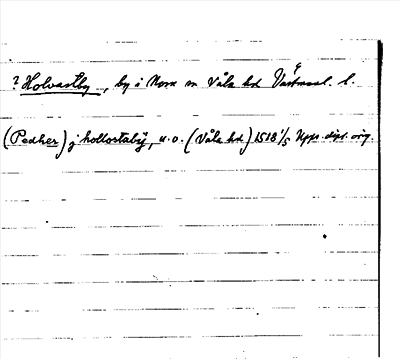 ? Holvastby, by i Nora sn Våla hd Västmanl. l.
(Pedher) j holtostaby, u.o. (Våla hd) 1518 1/5 Upps. dipl. orig.